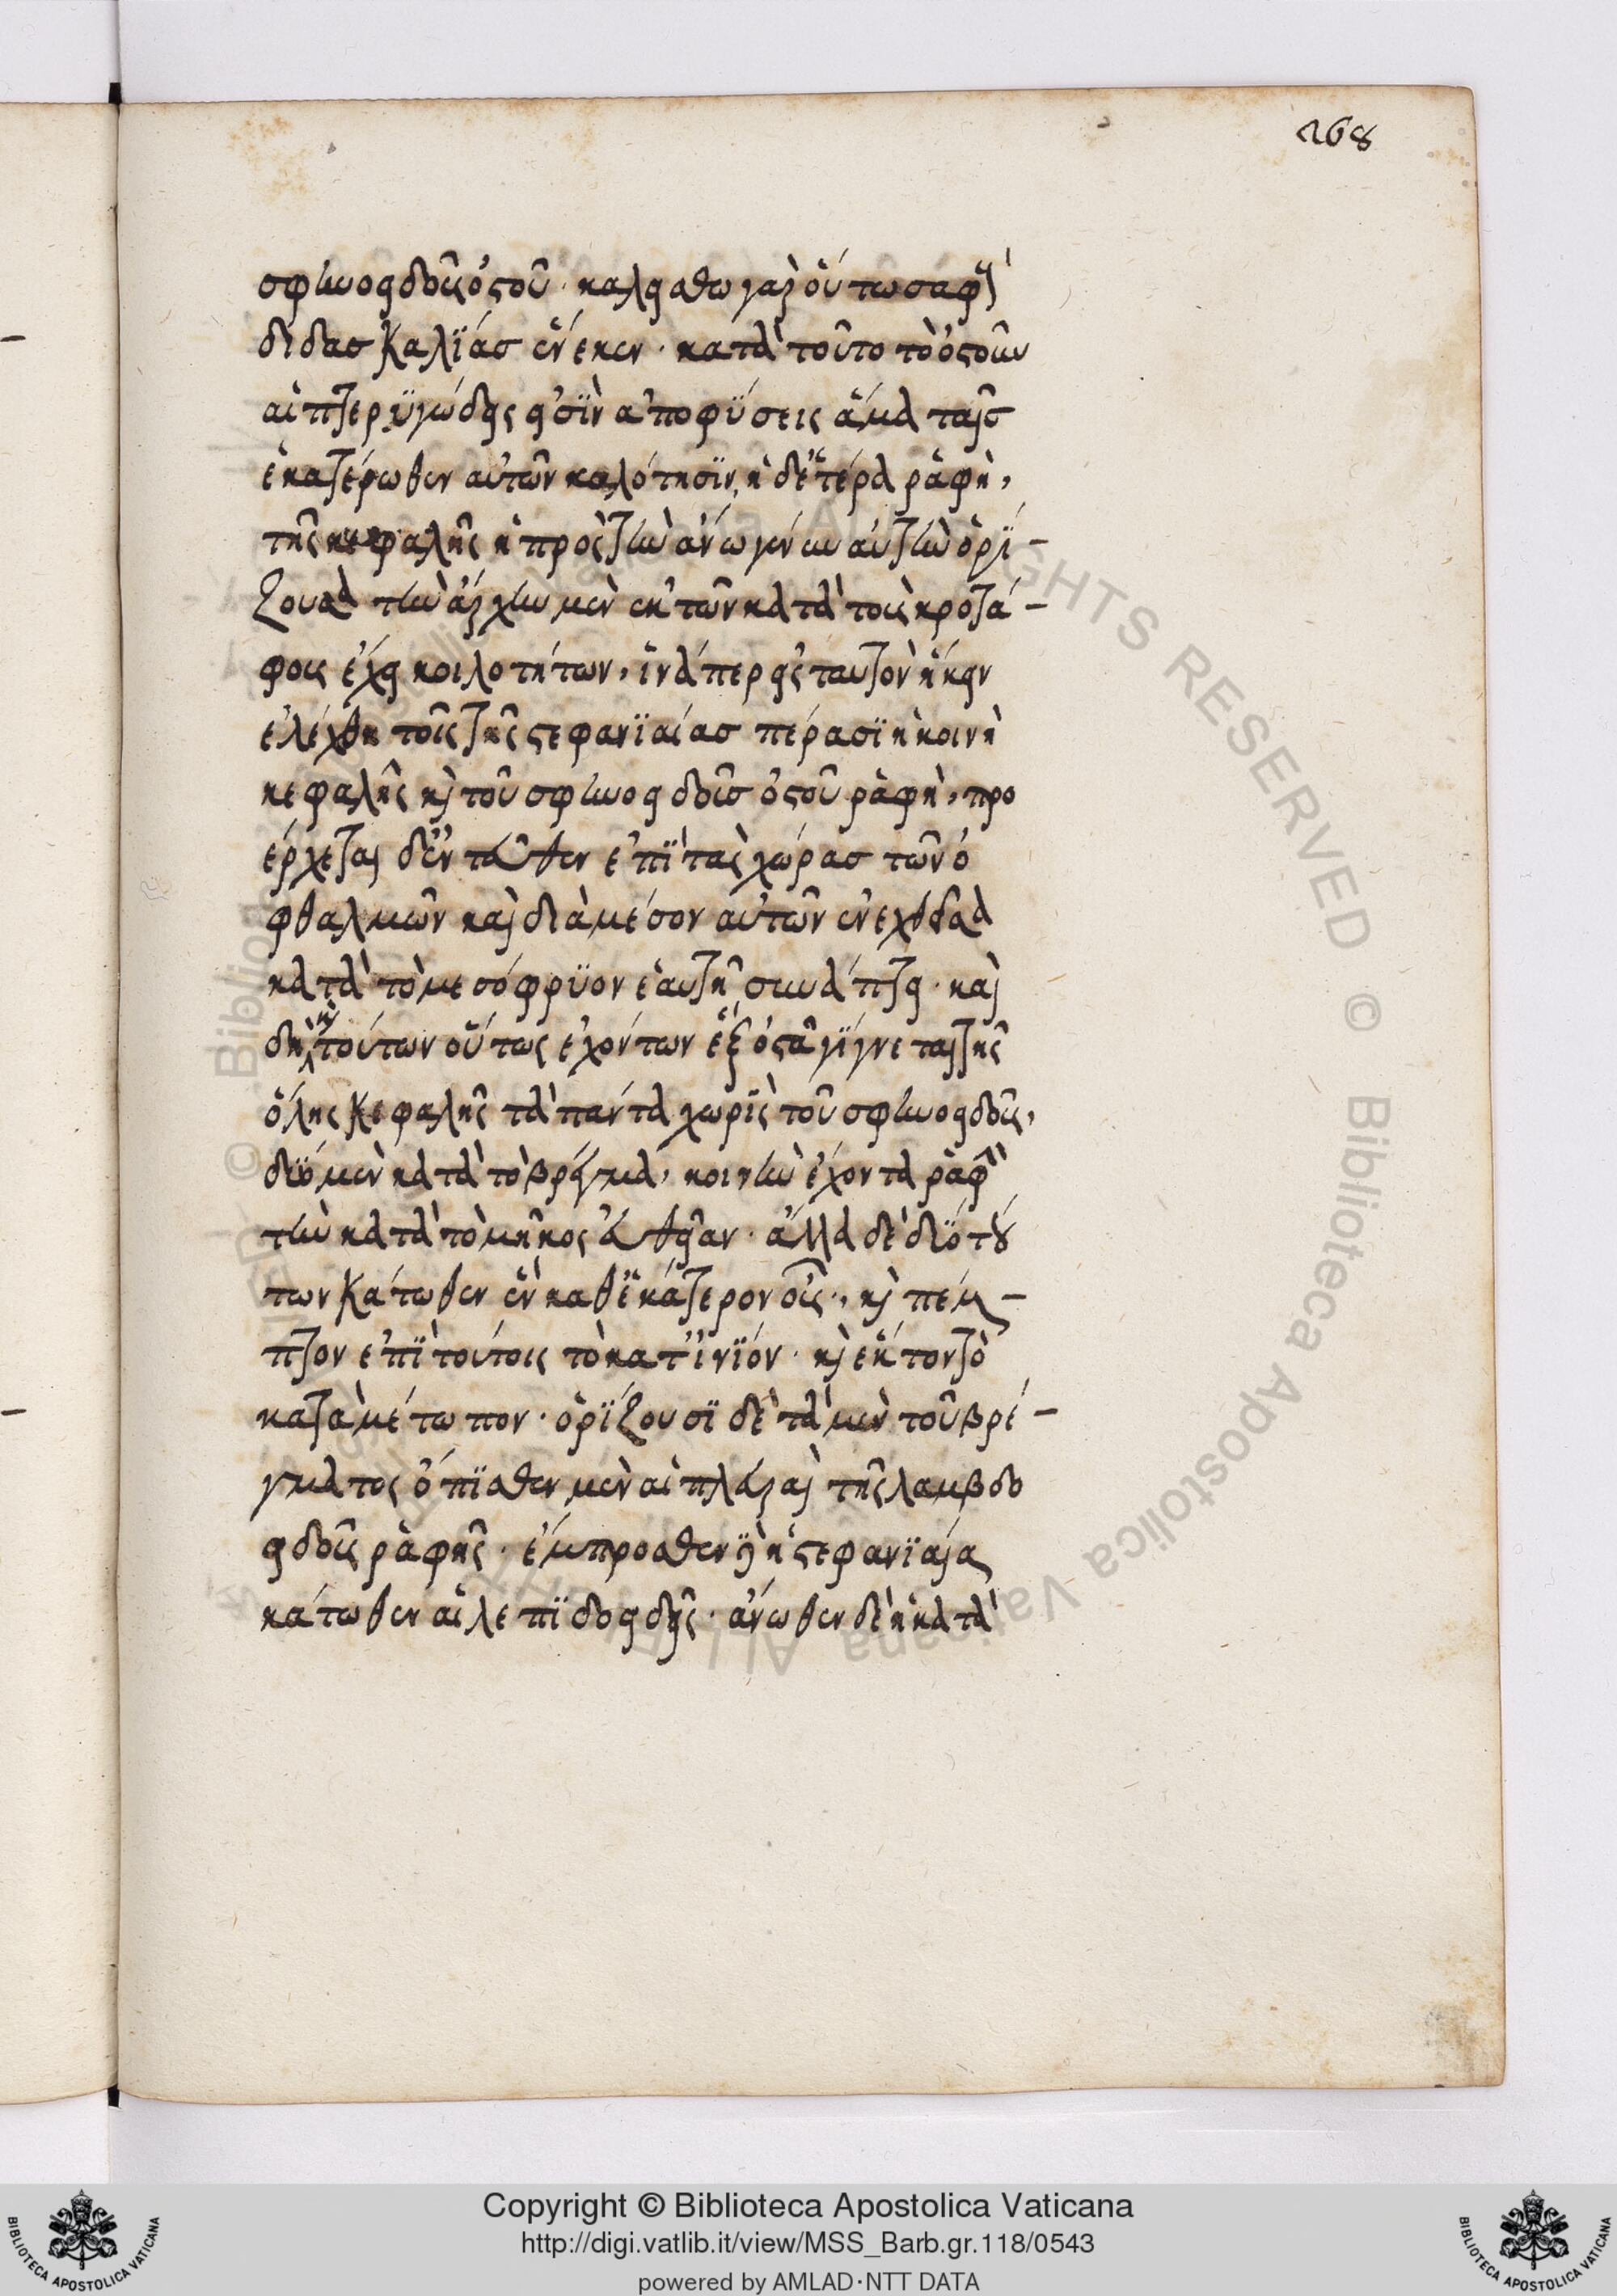 268
σφηνοειδοῦς ὀστοῦ· καλείσθω γὰρ οὕτω σαφοῦς
διδασκαλΐας ἕνεκεν· κατὰ τοῦτο τὸ ὀστοῦν
αἱ πτερϋγώδεις εἰσῒν ἀποφϋσεις ἅμα ταῖς
ἑκατέρωθεν αὐτῶν κοιλότησϊν, ἡ δ' ἑτέρα ῥαφὴ,
τῆς κεφαλῆς ἡ πρὸς τὴν ἄνω γένυν αὐτὴν ὁρΐ-
ζουσα τὴν ἀρχὴν μὲν ἐκ τῶν κατὰ τοὺς κροτά-
φους ἔχει κοιλοτήτων, ἵνα περ εἰς ταυτὸν ἥκειν
ἐλέχθη τοῖς τῆς στεφανϊαίας πέρασϊ ἡ κοινὴ
κεφαλῆς καὶ τοῦ σφηνοειδοῦς ὀστοῦ ῥαφὴ, προ
έρχεται δ' ἐνταῦθεν ἐπῒ τὰς χώρας τῶν ὀ
φθαλμῶν καὶ διὰ μέσον αὐτῶν ἐνεχθεῖσα
κατὰ τὸ μεσόφρϋον ἑαυτῇ συνάπτει· καὶ
δὴ καὶ τούτων οὕτως ἐχόντων ἓξ ὀστᾶ γΐγνεται τῆς
ὅλης κεφαλῆς τὰ πάντα χωρῒς τοῦ σφηνοειδοῦς,
δύο μὲν κατὰ τὸ βρέγμα, κοινὴν ἔχοντα ῥαφὴν
τὴν κατὰ τὸ μῆκος εὐθεῖαν· ἄλλα δὲ δύο τού
των κάτωθεν ἓν καθ' ἑκάτερον οὖς, καὶ πέμ-
πτον ἐπῒ τούτοις τὸ κατ' ἰνϊόν· καὶ ἕκτον τὸ
κατὰ μέτωπον· ὁρΐζουσϊ δὲ τὰ μὲν τοῦ βρέ-
γματος ὄπϊσθεν μὲν αἱ πλευραὶ τῆς λαμβδο
ειδοῦς ῥαφῆς· ἔμπροσθεν δὲ ἡ στεφανϊαία
κάτωθεν αἱ λεπϊδοειδεῖς· ἄνωθεν δὲ ἡ κατὰ
Copyright © Biblioteca Apostolica Vaticana
http://digi.vatlib.it/view/MSS_Barb.gr.118/0543
powered by AMLAD·NTT DATA